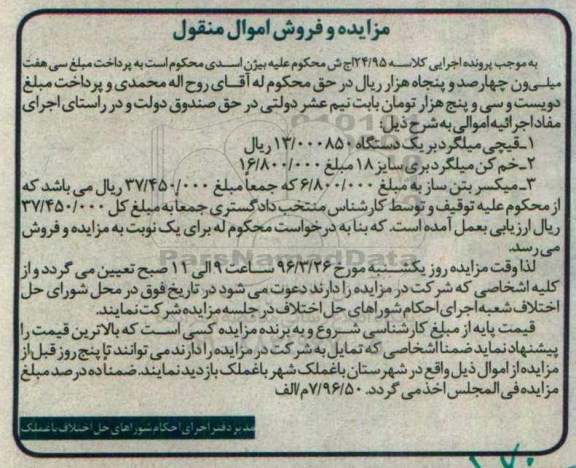 مزایده و فروش اموال منقول
به موجب پرونده اجرایی کلاسه ۲۴/۹۵اج ش محکوم علیه بیژن اسدی محکوم است به پرداخت مبلغ سی هفت
میلیون چهارصد و پنجاه هزار ریال در حق محکوم له آقای روح اله محمدی و پرداخت مبلغ
دویست و سی و پنج هزار تومان بابت نیم عشر دولتی در حق صندوق دولت و در راستای اجرای
مفاد اجرائیه اموالی به شرح ذیل:
۱ـ قیچی میلگرد بر یک دستگاه ۱۳/۰۰۰۸۵۰ ریال
۲ـ خم کن میلگرد بری سایز ۱۸ مبلغ ۱۶/۸۰۰/۰۰۰
۳ـ میکسر بتن ساز به مبلغ ۶/۸۰۰/۰۰۰ که جمعاً مبلغ ۳۷/۴۵۰/۰۰۰ ریال می باشد که
از محکوم علیه توقیف و توسط کارشناس منتخب دادگستری جمعاً به مبلغ کل ۳۷/۴۵۰/۰۰۰
ریال ارزیابی بعمل آمده است. که بنا به درخواست محکوم له برای یک نوبت به مزایده و فروش
می رسد.
لذا وقت مزایده روز یکشنبه مورخ ۹۶/۳/۲۶ ساعت ۹ الی ۱۱ صبح تعیین می گردد و از
کلیه اشخاصی که شرکت در مزایده را دارند دعوت می شود در تاریخ فوق در محل شورای حل
اختلاف شعبه اجرای احکام شوراهای حل اختلاف در جلسه مزایده شرکت نمایند.
قیمت پایه از مبلغ کارشناسی شروع و به برنده مزایده کسی است که بالاترین قیمت را
پیشنهاد نماید ضمنا اشخاصی که تمایل به شرکت در مزایده را دارند می توانند تا پنج روز قبل از
مزایده از اموال ذیل واقع در شهرستان باغملک شهر باغملک بازدید نمایند. ضمناً ده درصد مبلغ
مزایده فی المجلس اخذ می گردد. ۷/۹۶/۵۰م/الف
مدیر دفتر اجرای احکام شوراهای حل اختلاف باغملک
ParsNamadData